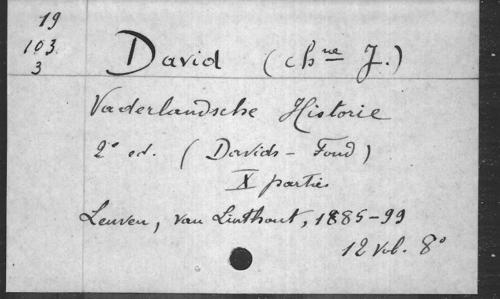 19
103
3
David (chne J.)
Vaderlandsche Historie
2e ed. (Davids-Fond)
X parties
Leuven, van Linthout, 1885-99
12 vol. 8°